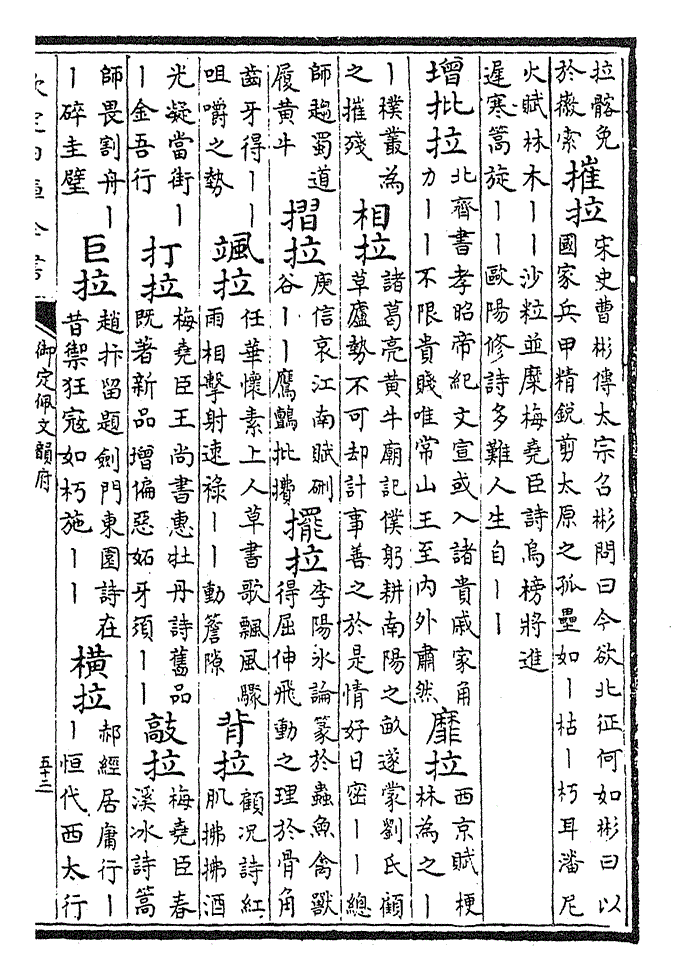 拉髂免
於徽索
摧拉
宋史曹彬傳太宗召彬問曰今欲北征何如彬曰以
國家兵甲精鋭剪太原之孤壘如丨枯丨朽耳潘尼
火賦林木丨丨沙粒並糜梅堯臣詩烏榜將進
遲寒蒿旋丨丨歐陽修詩多難人生自丨丨
增批拉
北齊書孝昭帝紀文宣或入諸貴戚家角
力丨丨不限貴賤唯常山王至内外肅然
靡拉
西京賦梗
林為之丨
丨樸叢為
之摧殘
相拉
諸葛亮黄牛廟記僕躬耕南陽之畝遂蒙劉氏顧
草廬勢不可却計事善之於是情好日密丨丨總
師趨蜀道
履黄牛
摺拉
庾信哀江南賦硎
谷丨丨鷹鸇批㩌
擺拉
李陽冰論篆於蟲魚禽獸
得屈伸飛動之理於骨角
齒牙得丨丨
咀嚼之勢
颯拉
任華懷素上人草書歌飄風驟
雨相擊射速祿丨丨動簷隙
背拉
顧況詩紅
肌拂拂酒
光凝當街丨
丨金吾行
打拉
梅堯臣王尚書惠牡丹詩舊品
既著新品增偏惡妬牙須丨丨
敲拉
梅堯臣春
溪冰詩蒿
師畏割舟丨
丨碎圭璧
巨拉
趙抃留題劍門東園詩在
昔禦狂寇如朽施丨丨
橫拉
郝經居庸行丨
丨恒代西太行
欽定四庫全書
御定佩文韻府
五十三